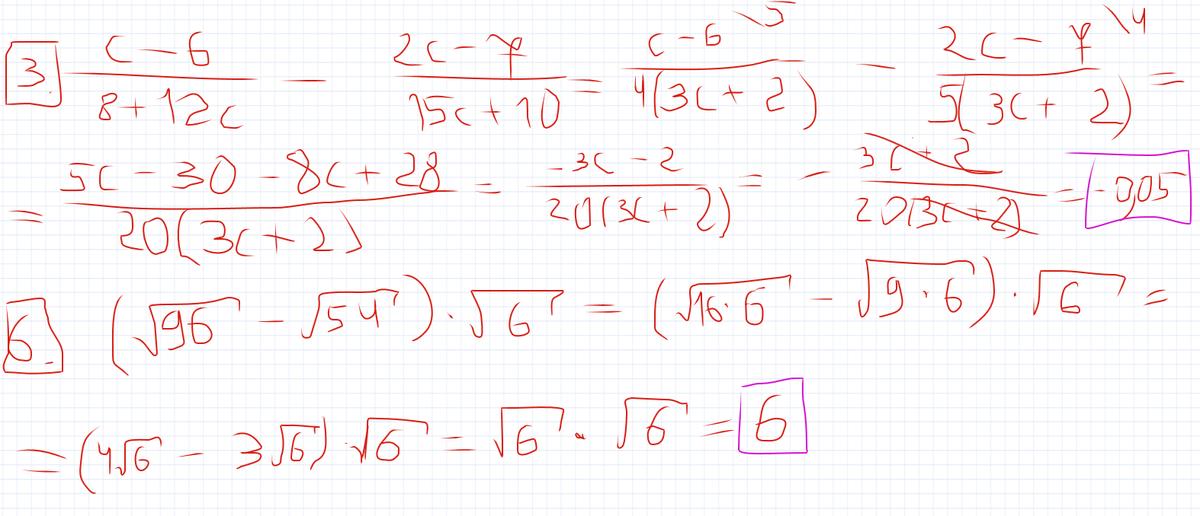 3. (c-6)/(8+12c) - (2c-7)/(15c+10) = (c-6)\5/(4(3c+2)) - (2c-7)\4/(5(3c+2)) =
= (5c-30-8c+28)/(20(3c+2)) = (-3c-2)/(20(3c+2)) = -(3c+2)/(20(3c+2)) = -0,05
6. (√96 - √54)·√6 = (√16·6 - √9·6)·√6 =
= (4√6 - 3√6)·√6 = √6·√6 = 6